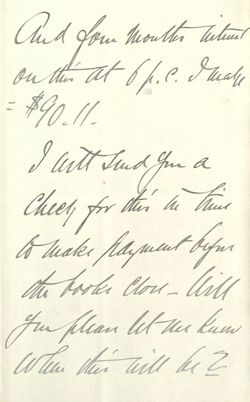 And four months interest
on this at 6 p.c. I make
= $90.11.
I will send you a
check for this in time
to make payment before
the books close - Will
you please let me know
when this will be?